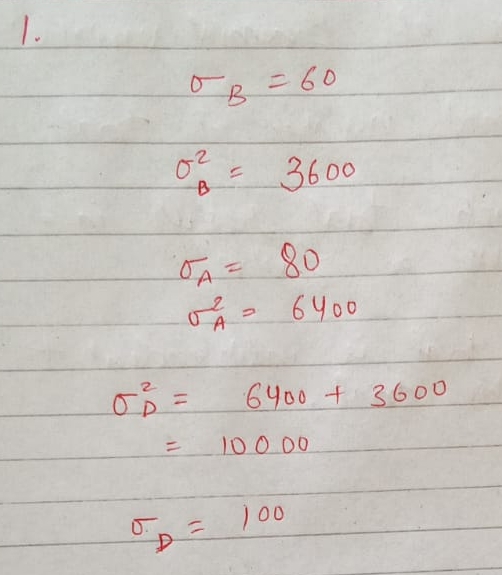 1.
σ_B = 60
σ²_B = 3600
σ_A = 80
σ²_A = 6400
σ²_D = 6400 + 3600
= 10000
σ_D = 100